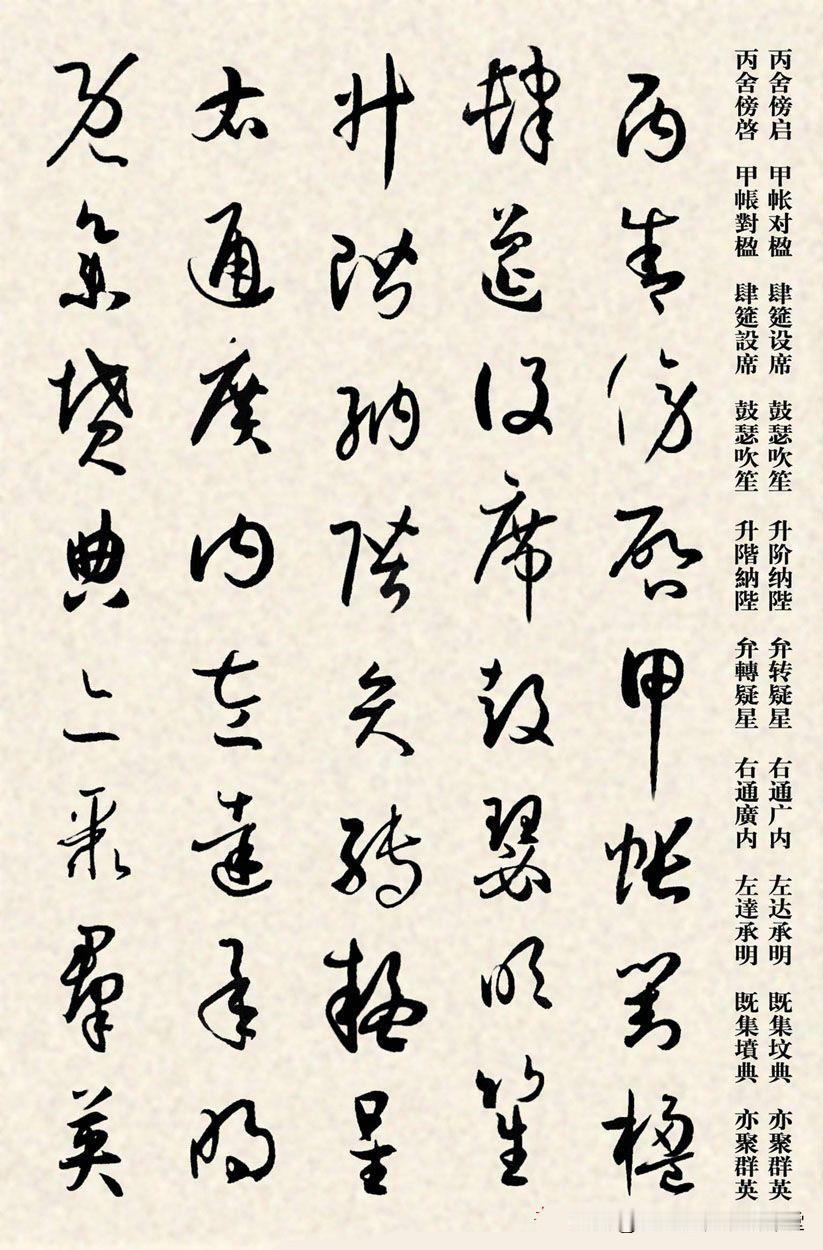 丙舍傍启 甲帐对楹 肆筵设席 鼓瑟吹笙 升阶纳陛 弁转疑星 右通广内 左达承明 既集坟典 亦聚群英
丙舍傍啓 甲帳對楹 肆筵設席 鼓瑟吹笙 升階納陛 弁轉疑星 右通廣内 左達承明 既集墳典 亦聚群英
丙舍傍啓甲帳對楹
肆筵設席鼓瑟吹笙
升階納陛弁轉疑星
右通廣内左達承明
既集墳典亦聚群英